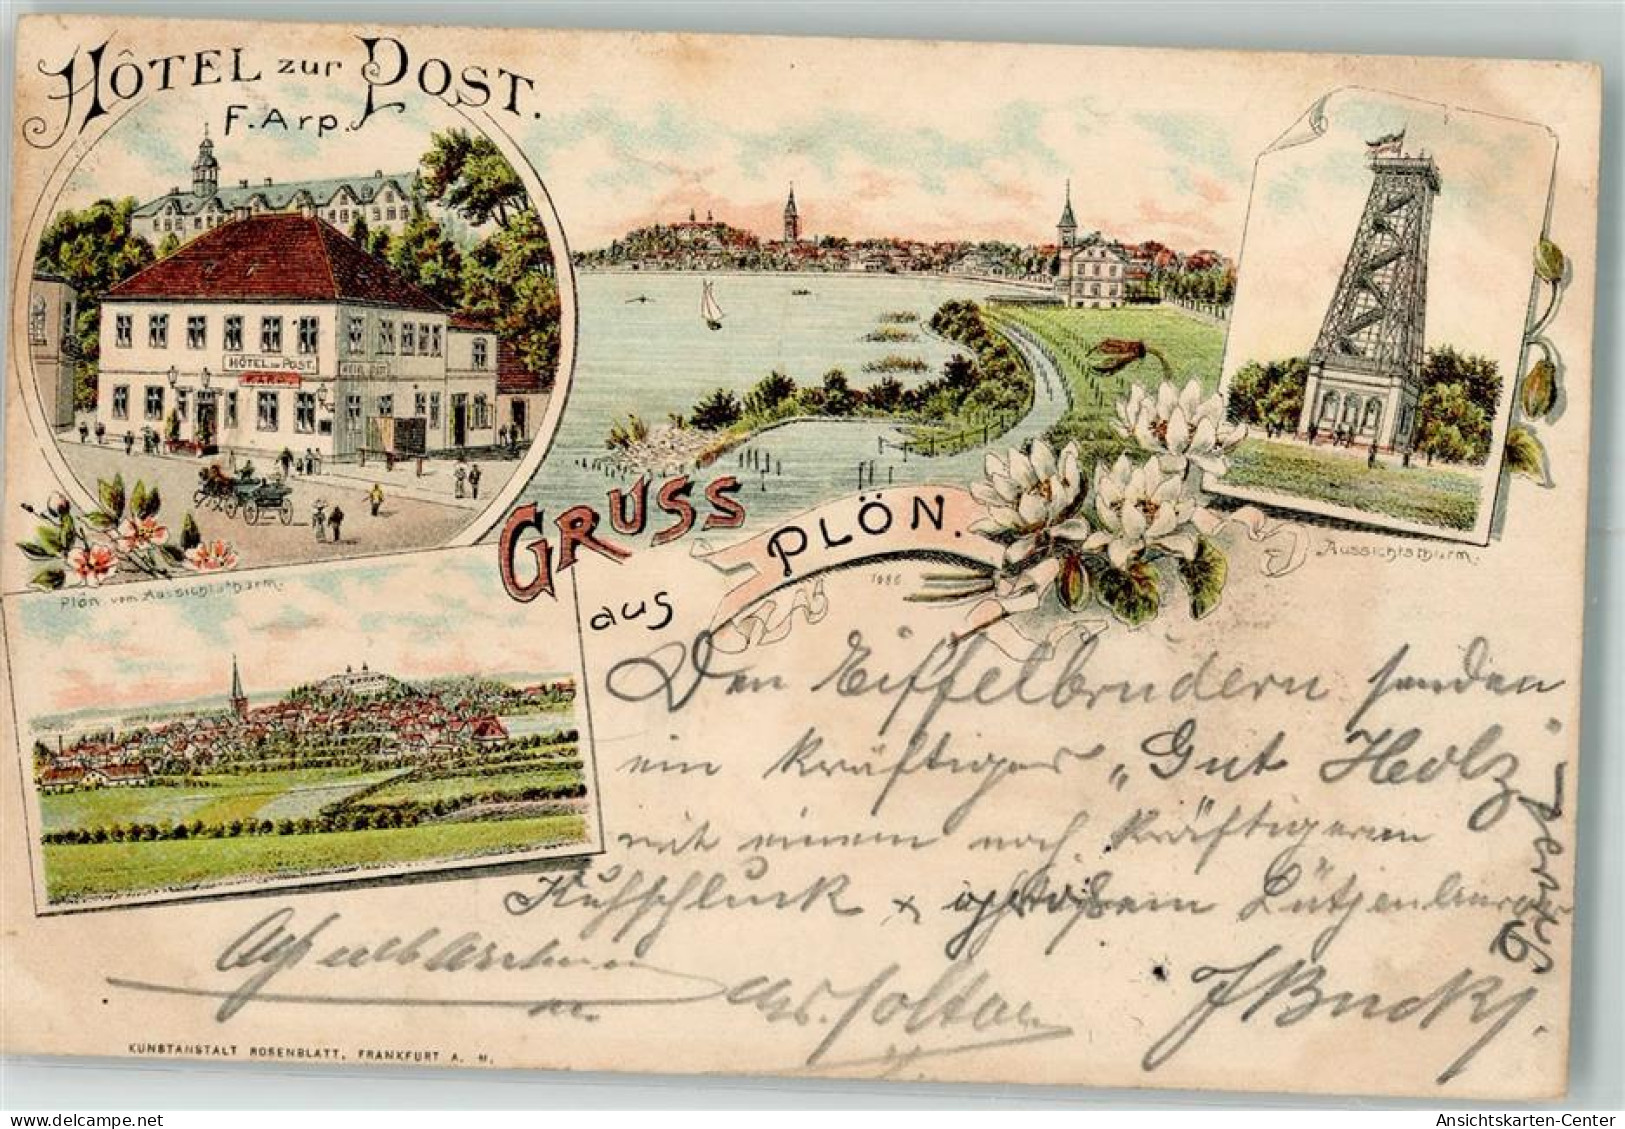 HÔTEL zur POST.
F. Arp.
HÔTEL ZUR POST.
F. ARP.
Plön vom Aussichtsthurm.
GRUSS
aus
PLÖN.
1086
Aussichtsthurm.
Den Eiffelbrudern senden
ein kräftiges „Gut Holz"
mit einem noch kräftigeren
Kuhschluck
Lützenburger
J Bucky.
KUNSTANSTALT ROSENBLATT, FRANKFURT A. M.
Ansichtskarten-Center